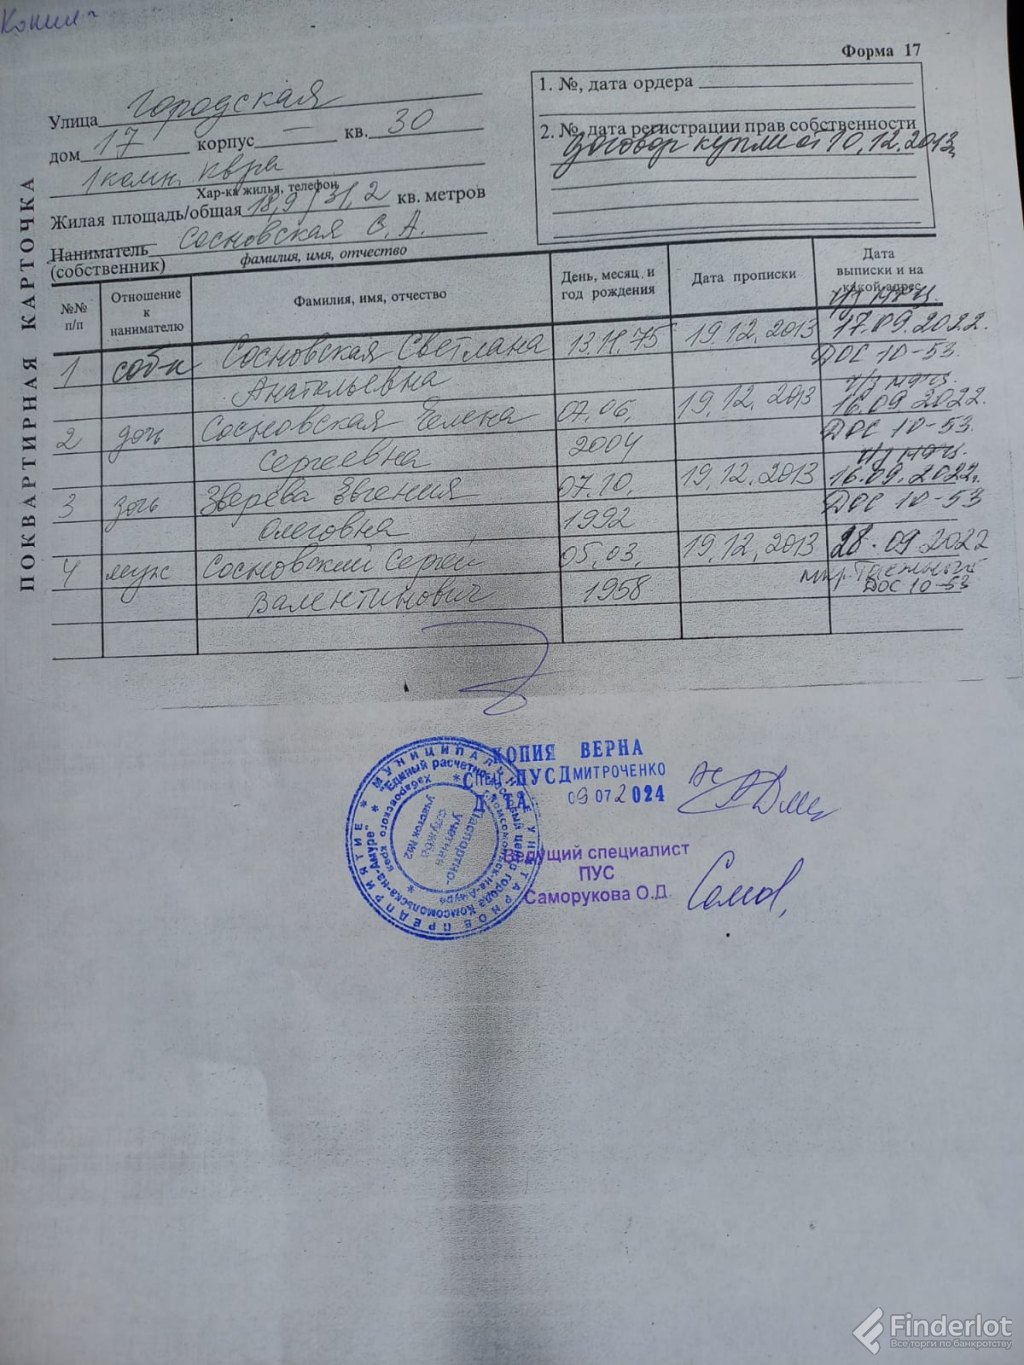 Копия
Форма 17
ПОКВАРТИРНАЯ КАРТОЧКА
Улица Городская
дом 17 корпус — кв. 30
1 комн. кв-ра
Хар-ка жилья, телефон
Жилая площадь/общая 18,9/31,2 кв. метров
Наниматель Сосновская С. А.
(собственник) фамилия, имя, отчество
1. №, дата ордера
2. №, дата регистрации прав собственности
Договор купли от 10.12.2013
№№ п/п
Отношение к нанимателю
Фамилия, имя, отчество
День, месяц и год рождения
Дата прописки
Дата выписки и на какой адрес
1 соб-к Сосновская Светлана 13.11.75 19.12.2013 17.09.2022.
Анатольевна ДОС 10-53.
2 дочь Сосновская Елена 07.06. 19.12.2013 16.09 2022.
Сергеевна 2004 ДОС 10-53.
3 дочь Зверева Евгения 07.10. 19.12.2013 16.09.2022г.
Олеговна 1992 ДОС 10-53
4 муж Сосновский Сергей 05.03. 19.12.2013 28.09.2022
Валентинович 1958 ДОС 10-53
КОПИЯ ВЕРНА
СПЕЦ. ПУС ДМИТРОЧЕНКО
ДАТА 09 07 2024
Ведущий специалист
ПУС
Саморукова О.Д.
* МУНИЦИПАЛЬНОЕ УНИТАРНОЕ ПРЕДПРИЯТИЕ *
Паспортно-
учетная
служба
участок №2
Finderlot
Все торги по банкротству